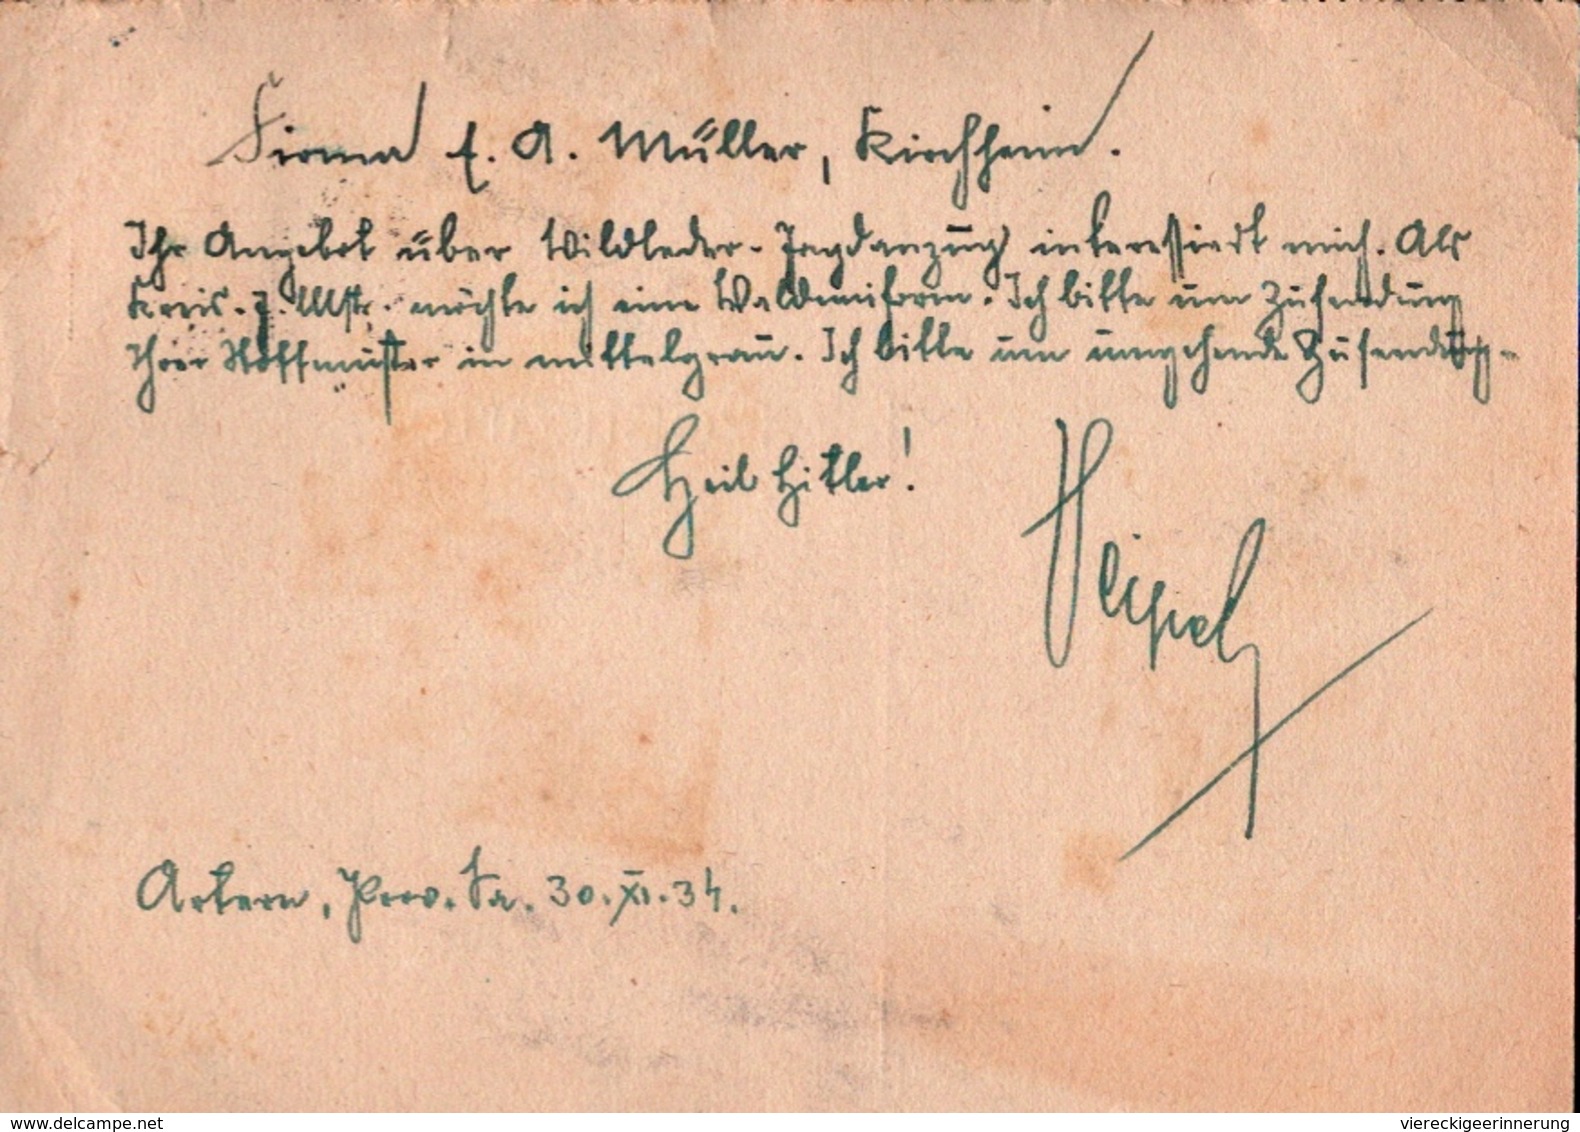 Firma E. A. Müller, Kirchheim.
Ihr Angebot über Wildleder-Jagdanzug interessiert mich. Als
Kreis-J. Mstr. möchte ich eine Walduniform. Ich bitte um Zusendung
Ihrer Stoffmuster in mittelgrau. Ich bitte um umgehende Zusendung.
Heil Hitler!
Artern, Prov. Sa. 30. XI. 34.
© delcampe.net
viereckigeerinnerung